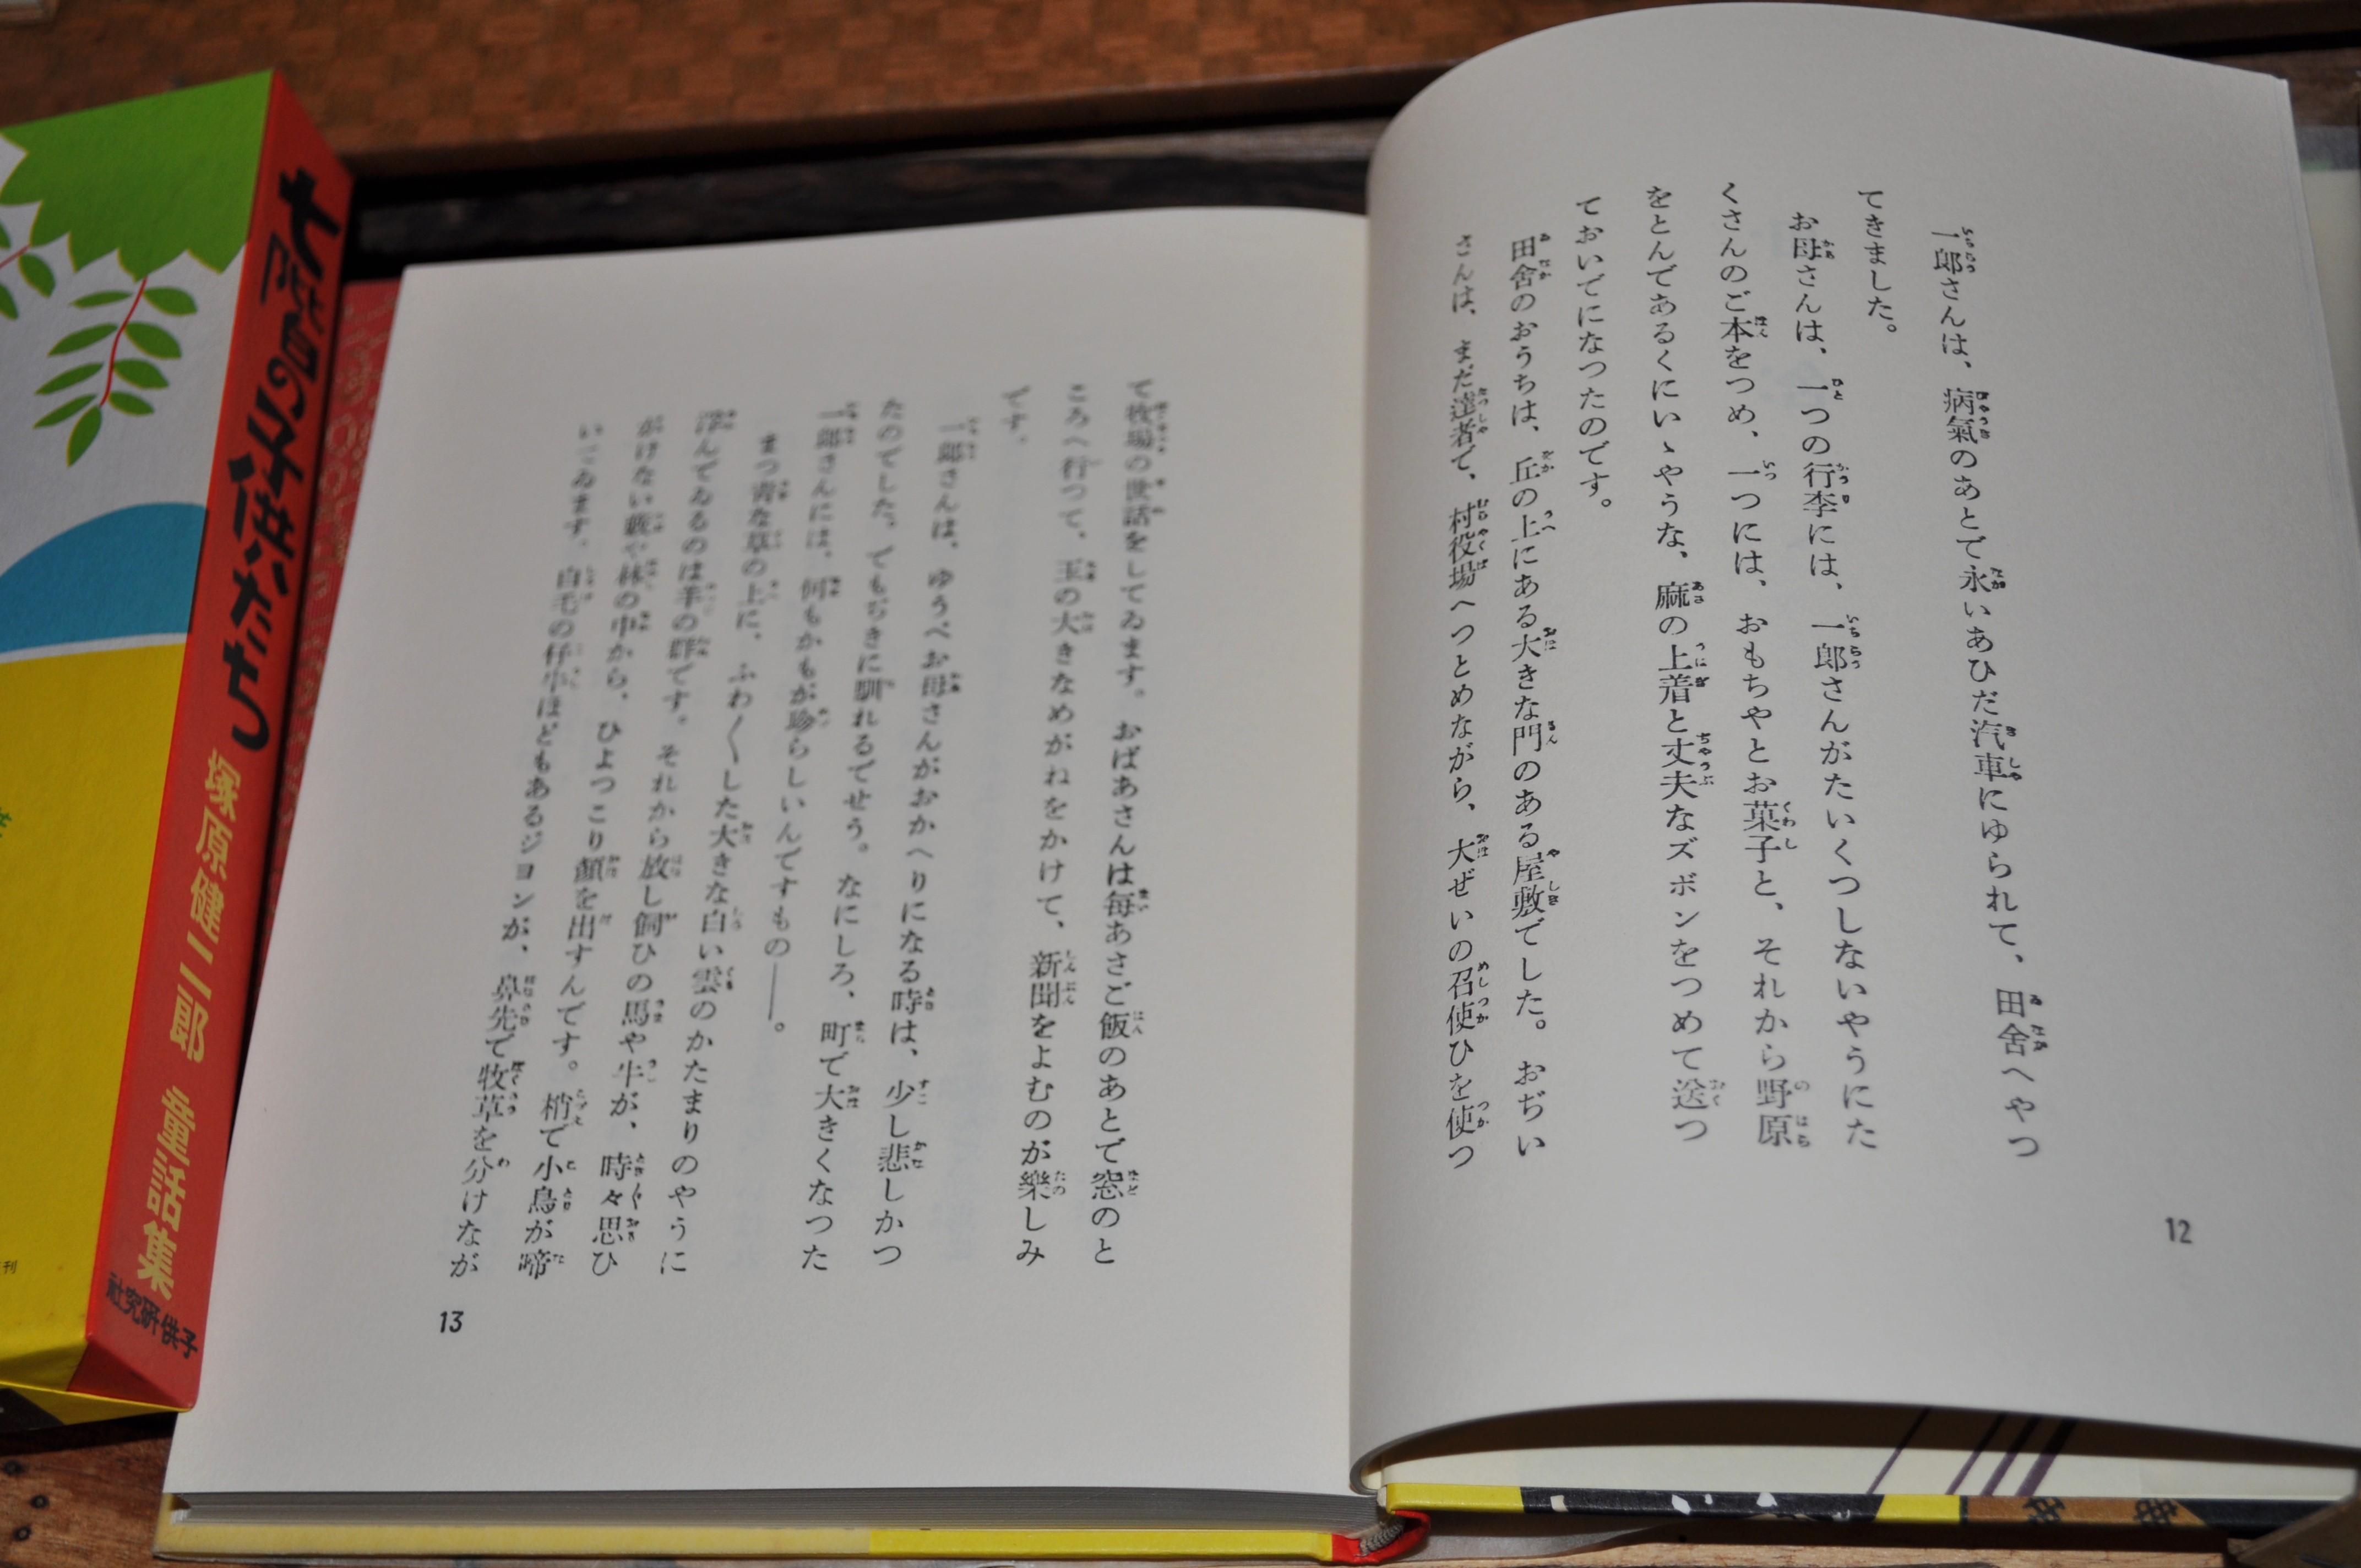 一郎さんは、病氣のあとで永いあひだ汽車にゆられて、田舍へやつ
てきました。
お母さんは、一つの行李には、一郎さんがたいくつしないやうにた
くさんのご本をつめ、一つには、おもちやとお菓子と、それから野原
をとんであるくにいゝやうな、麻の上着と丈夫なズボンをつめて送つ
ておいでになつたのです。
田舍のおうちは、丘の上にある大きな門のある屋敷でした。おぢい
さんは、まだ達者で、村役場へつとめながら、大ぜいの召使ひを使つ
12
て牧場の世話をしてゐます。おばあさんは毎あさご飯のあとで窓のと
ころへ行つて、玉の大きなめがねをかけて、新聞をよむのが樂しみ
です。
一郎さんは、ゆうべお母さんがおかへりになる時は、少し悲しかつ
たのでした。でもぢきに馴れるでせう。なにしろ、町で大きくなつた
一郎さんには、何もかもが珍らしいんですもの――。
まつ青な草の上に、ふわ〱した大きな白い雲のかたまりのやうに
浮んでゐるのは羊の群です。それから放し飼ひの馬や牛が、時々思ひ
がけない藪や林の中から、ひよつこり顏を出すんです。梢で小鳥が啼
いてゐます。白毛の仔牛ほどもあるジヨンが、鼻先で牧草を分けなが
13
七階の子供たち
塚原健二郎 童話集
子供研究社
刊